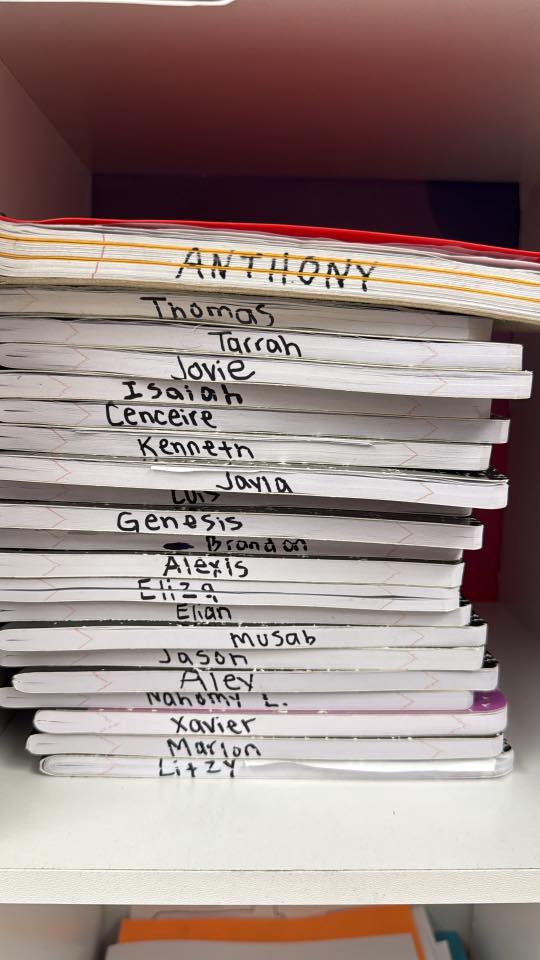 ANTHONY
Thomas
Tarrah
Jovie
Isaiah
Cenceire
Kenneth
Jayla
Luis
Genesis
Brandon
Alexis
Eliza
Elian
Musab
Jason
Alex
Nahomy L.
Xavier
Marlon
Litzy